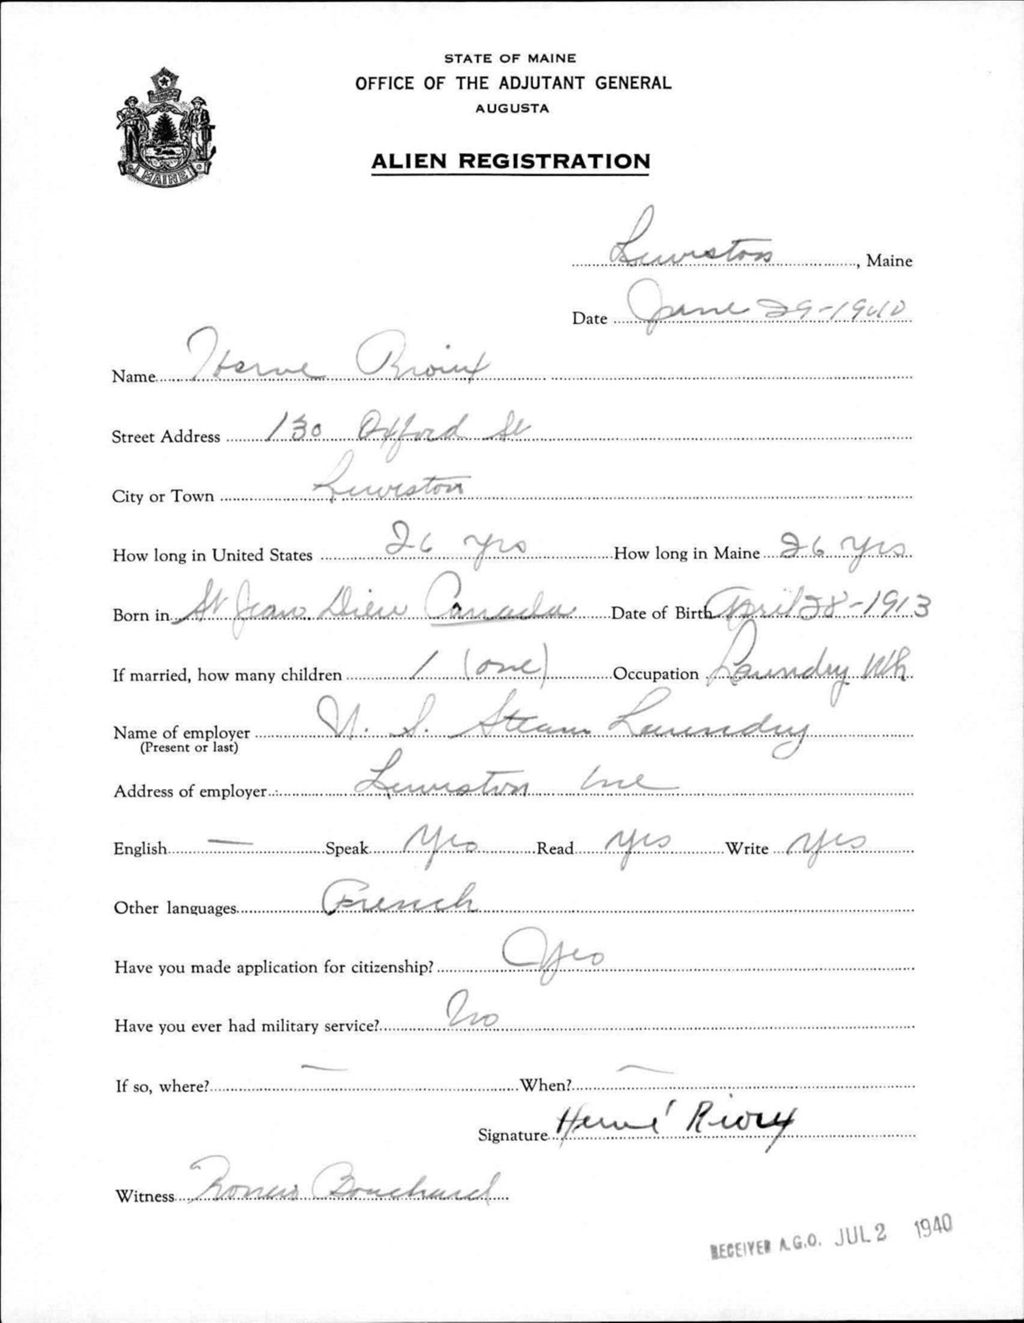 STATE OF MAINE
OFFICE OF THE ADJUTANT GENERAL
AUGUSTA
MAINE
ALIEN REGISTRATION
Lewiston, Maine
Date June 29-1940
Name Herve Rioux
Street Address 130 Oxford St
City or Town Lewiston
How long in United States 26 yrs How long in Maine 26 yrs
Born in St Jean Dieu Canada Date of Birth April 28-1913
If married, how many children 1 (one) Occupation Laundry Wk
Name of employer U. S. Steam Laundry
(Present or last)
Address of employer Lewiston Me
English — Speak Yes Read Yes Write Yes
Other languages French
Have you made application for citizenship? Yes
Have you ever had military service? No
If so, where? — When? —
Signature Hervé Rioux
Witness Bouchard
RECEIVED A.G.O. JUL 2 1940